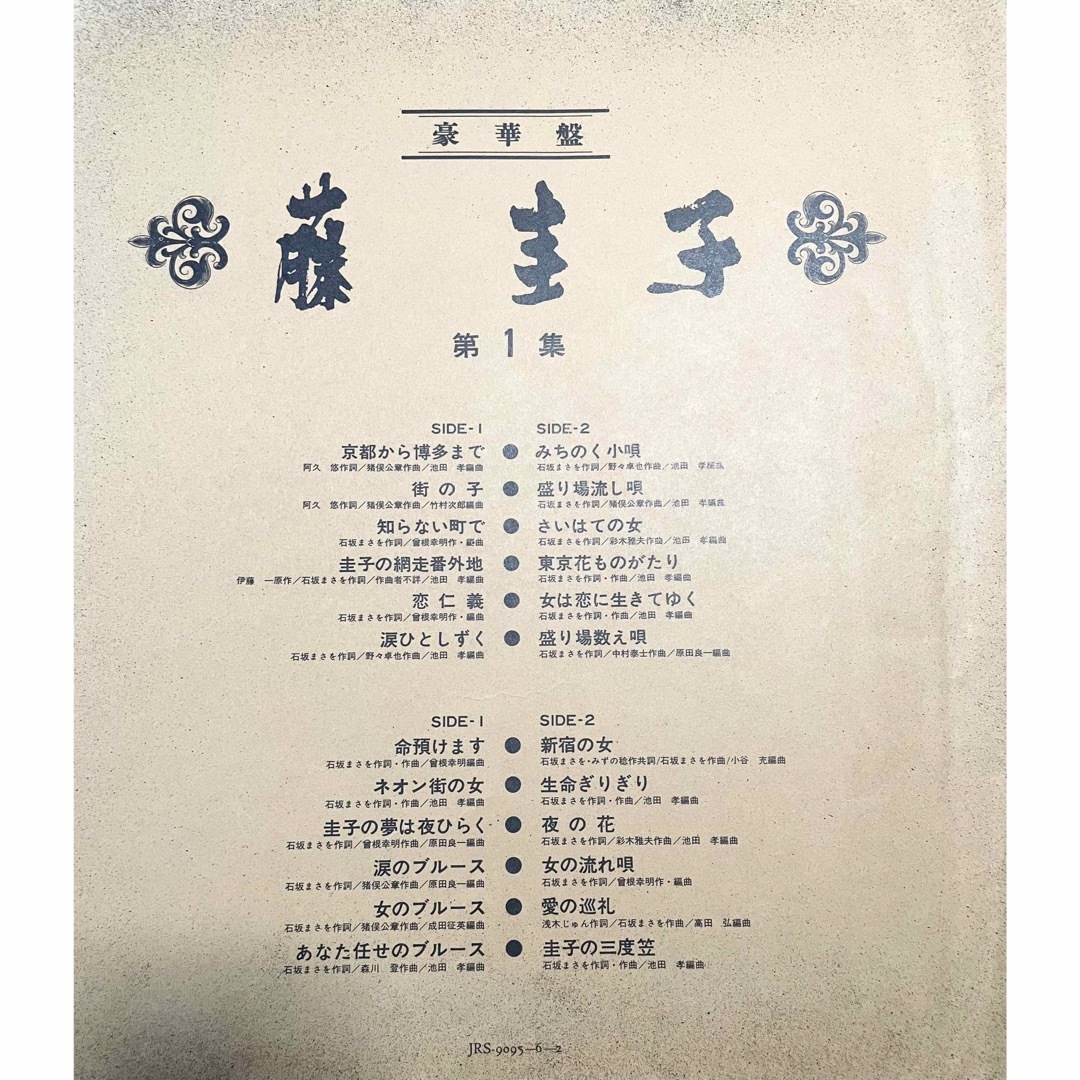 豪華盤
藤 圭 子
第1集
SIDE-1
京都から博多まで
阿久 悠作詞／猪俣公章作曲／池田 孝編曲
街の子
阿久 悠作詞／猪俣公章作曲／竹村次郎編曲
知らない町で
石坂まさを作詞／曾根幸明作・編曲
圭子の網走番外地
伊藤 一原作／石坂まさを作詞／作曲者不詳／池田 孝編曲
恋仁義
石坂まさを作詞／曾根幸明作・編曲
涙ひとしずく
石坂まさを作詞／野々卓也作曲／池田 孝編曲
SIDE-2
みちのく小唄
石坂まさを作詞／野々卓也作曲／池田 孝編曲
盛り場流し唄
石坂まさを作詞／猪俣公章作曲／池田 孝編曲
さいはての女
石坂まさを作詞／彩木雅夫作曲／池田 孝編曲
東京花ものがたり
石坂まさを作詞・作曲／池田 孝編曲
女は恋に生きてゆく
石坂まさを作詞・作曲／池田 孝編曲
盛り場数え唄
石坂まさを作詞／中村泰士作曲／原田良一編曲
SIDE-1
命預けます
石坂まさを作詞・作曲／曾根幸明編曲
ネオン街の女
石坂まさを作詞・作曲／池田 孝編曲
圭子の夢は夜ひらく
石坂まさを作詞／曾根幸明作曲／原田良一編曲
涙のブルース
石坂まさを作詞／猪俣公章作曲／原田良一編曲
女のブルース
石坂まさを作詞／猪俣公章作曲／成田征英編曲
あなた任せのブルース
石坂まさを作詞／森川 登作曲／池田 孝編曲
SIDE-2
新宿の女
石坂まさを・みずの稔作共詞/石坂まさを作曲/小谷 充編曲
生命ぎりぎり
石坂まさを作詞・作曲／池田 孝編曲
夜の花
石坂まさを作詞／彩木雅夫作曲／池田 孝編曲
女の流れ唄
石坂まさを作詞／曾根幸明作・編曲
愛の巡礼
浅木じゅん作詞／石坂まさを作曲／高田 弘編曲
圭子の三度笠
石坂まさを作詞・作曲／池田 孝編曲
JRS-9095—6—2